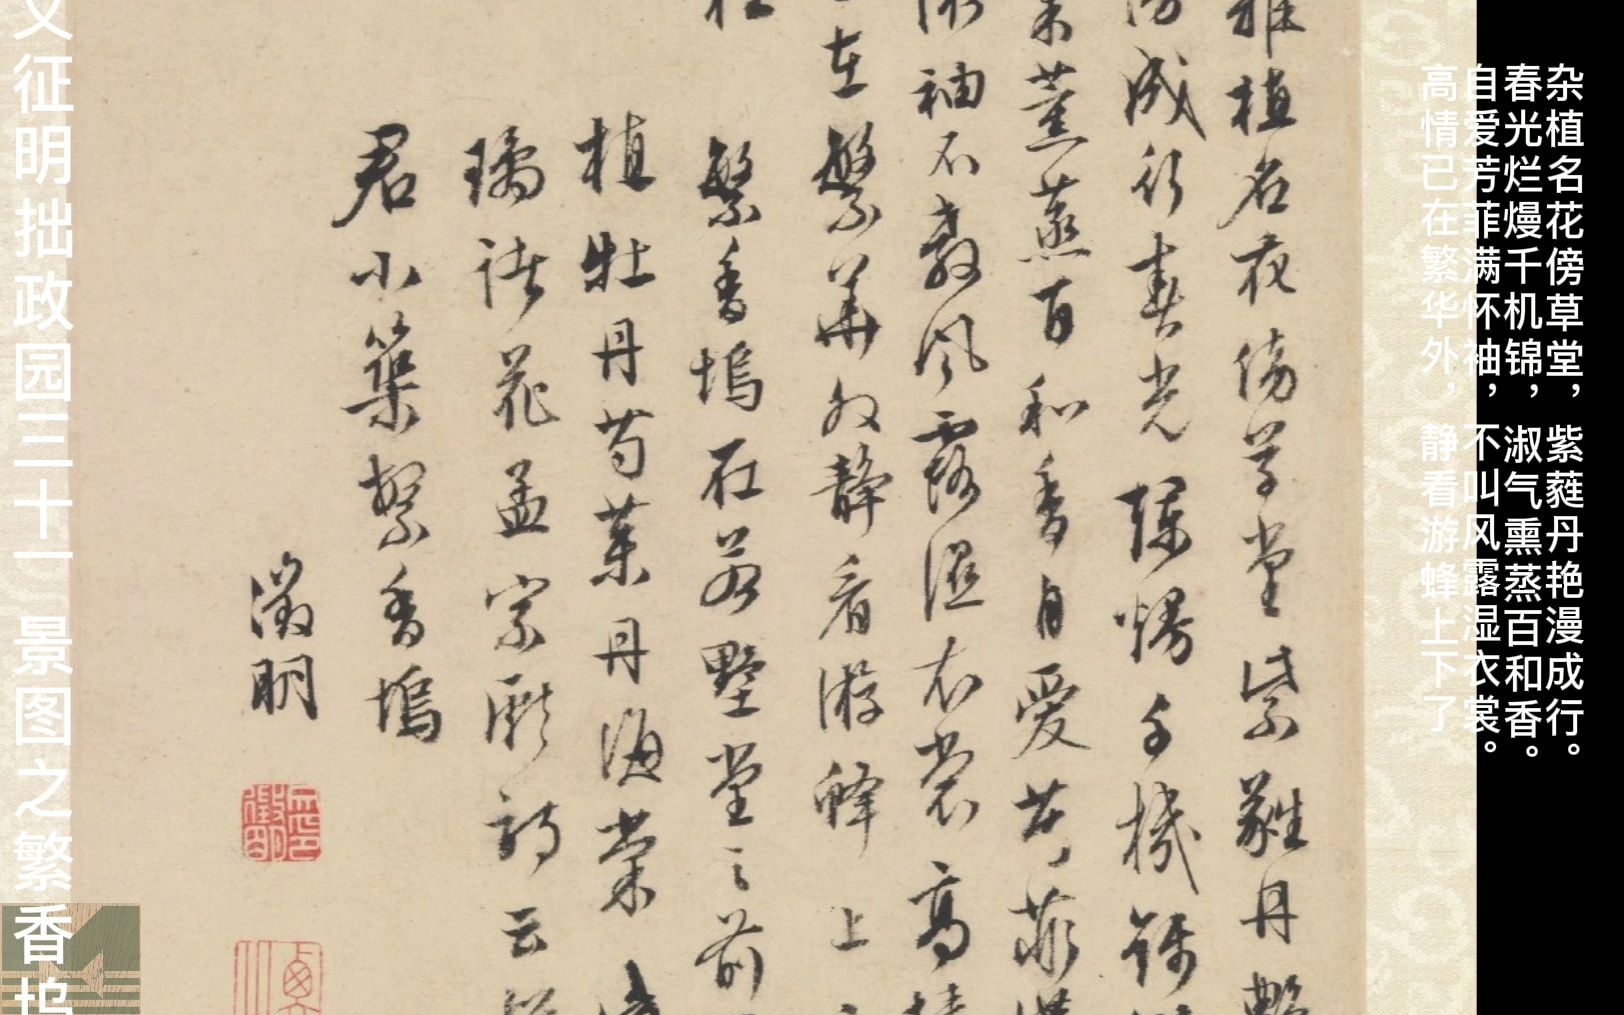 杂植名花傍草堂，紫蕤丹艳漫成行。
春光烂熳千机锦，淑气熏蒸百和香。
自爱芳菲满怀袖，不叫风露湿衣裳。
高情已在繁华外，静看游蜂上下了
雜植名花傍草堂紫蕤丹艷
漫成行春光爛熳千機錦
熏蒸百和香自愛芳菲滿
懷袖不教風露濕衣裳高情
在繁華外靜看游蜂上
狂
繁香塢在若墅堂之前
植牡丹芍藥丹海棠紫
璚諸花孟宗獻詩云從
君小築繁香塢
徵明
文征明拙政园三十一景图之繁香坞